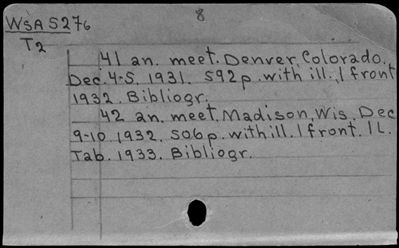 8
WSA5276
T2
41 an. meet. Denver, Colorado.
Dec. 4-5. 1931. 592p. with ill. 1 front
1932. Bibliogr.
42 an. meet. Madison, Wis. Dec
9-10 1932. 506p. with ill. 1 front. 1 L.
Tab. 1933. Bibliogr.